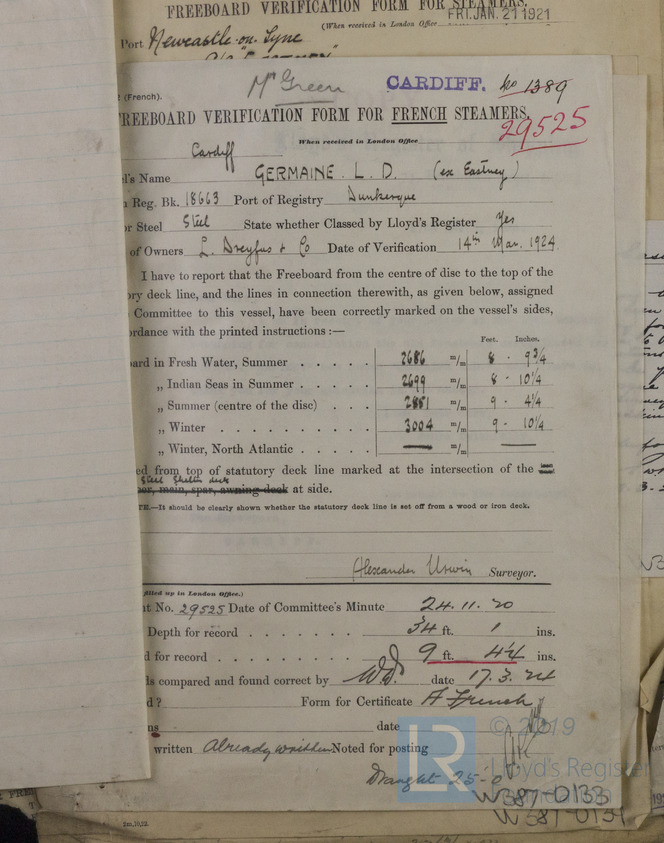 FREEBOARD VERIFICATION FORM FOR STEAMERS.
(When received in London Office FRI. JAN. 21 1921
Port Newcastle-on-Tyne
Mr Green CARDIFF. No 1389
(French).
FREEBOARD VERIFICATION FORM FOR FRENCH STEAMERS.
29525
When received in London Office
Cardiff
l's Name GERMAINE L. D. (ex Eastney)
Reg. Bk. 18663 Port of Registry Dunkerque
or Steel Steel State whether Classed by Lloyd's Register Yes
of Owners L. Dreyfus & Co Date of Verification 14th Mar. 1924.
I have to report that the Freeboard from the centre of disc to the top of the
ory deck line, and the lines in connection therewith, as given below, assigned
Committee to this vessel, have been correctly marked on the vessel's sides,
ordance with the printed instructions :—
Feet. Inches.
oard in Fresh Water, Summer . . . . . 2686 m/m 8 - 9 3/4
„ Indian Seas in Summer . . . . . 2699 m/m 8 - 10 1/4
„ Summer (centre of the disc) . . . 2851 m/m 9 - 4 1/4
„ Winter . . . . . . . . . . 3004 m/m 9 - 10 1/4
„ Winter, North Atlantic . . . . . — m/m —
ed from top of statutory deck line marked at the intersection of the
Steel Shelter deck
per, main, spar, awning deck at side.
TE.—It should be clearly shown whether the statutory deck line is set off from a wood or iron deck.
Alexander Urwin Surveyor.
filled up in London Office.)
t No. 29525 Date of Committee's Minute 24.11.20
Depth for record . . . . . . . 34 ft. 1 ins.
d for record . . . . . . . . 9 ft. 4 1/4 ins.
ls compared and found correct by date 17.3.24
d? Form for Certificate A French
ns date
written Already written Noted for posting
© 2019
LR Lloyd's Register
Draught 25'-0
W387-0133
W387-0134
2m,10,22.